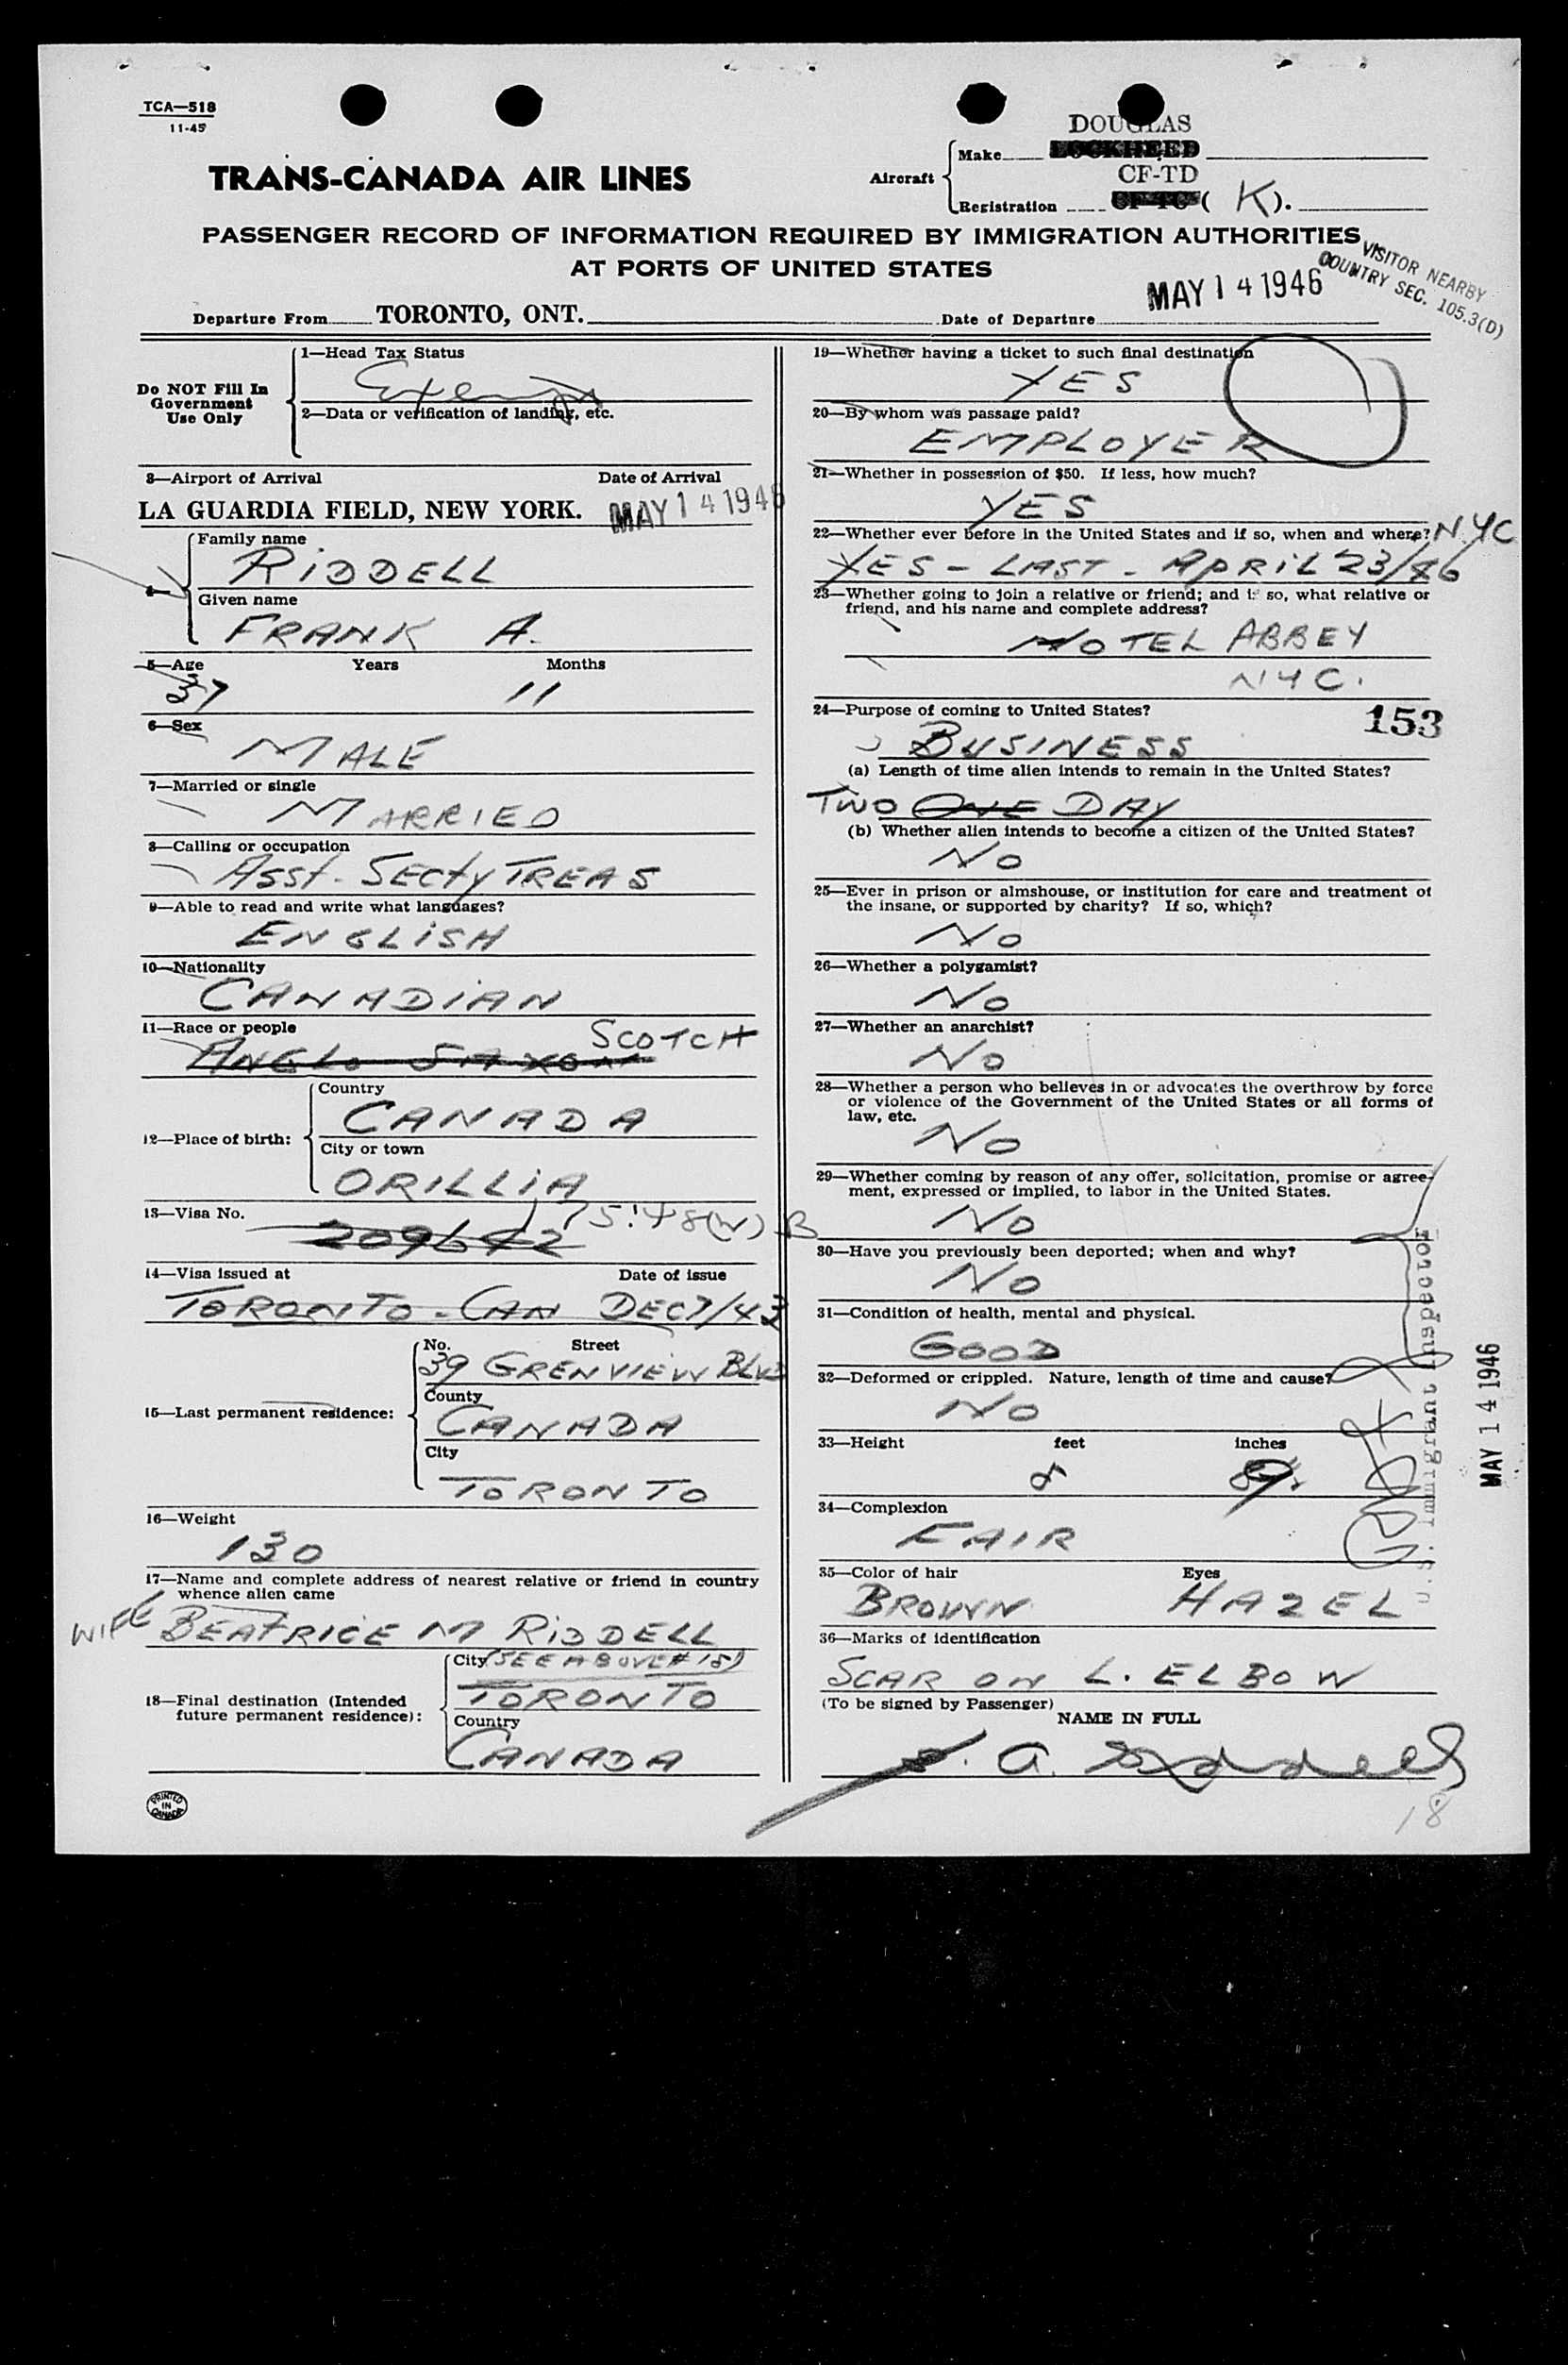 TCA—518
11-45
DOUGLAS
Make LOCKHEED
TRANS-CANADA AIR LINES
Aircraft
CF-TD
Registration CF-TC ( K ).
PASSENGER RECORD OF INFORMATION REQUIRED BY IMMIGRATION AUTHORITIES
AT PORTS OF UNITED STATES
VISITOR NEARBY
COUNTRY SEC. 105.3(D)
MAY 14 1946
Departure From TORONTO, ONT. Date of Departure
Do NOT Fill In
Government
Use Only
1—Head Tax Status
Exempt
2—Data or verification of landing, etc.
3—Airport of Arrival Date of Arrival
LA GUARDIA FIELD, NEW YORK. MAY 14 1946
Family name
RIDDELL
4—
Given name
FRANK A.
5—Age Years Months
37 11
6—Sex
MALE
7—Married or single
MARRIED
8—Calling or occupation
ASST. SECTY TREAS
9—Able to read and write what languages?
ENGLISH
10—Nationality
CANADIAN
11—Race or people
SCOTCH
ANGLO SAXON
12—Place of birth:
Country
CANADA
City or town
ORILLIA
13—Visa No.
209642
14—Visa issued at Date of issue
TORONTO - CAN DEC 7/43
15—Last permanent residence:
No. Street
39 GRENVIEW BLVD
County
CANADA
City
TORONTO
16—Weight
130
17—Name and complete address of nearest relative or friend in country
whence alien came
WIFE BEATRICE M RIDDELL
18—Final destination (Intended
future permanent residence):
City (SEE ABOVE # 15)
TORONTO
Country
CANADA
PRINTED
IN
CANADA
19—Whether having a ticket to such final destination
YES
20—By whom was passage paid?
EMPLOYER
21—Whether in possession of $50. If less, how much?
YES
22—Whether ever before in the United States and if so, when and where? N.YC
YES - LAST - APRIL 23/46
23—Whether going to join a relative or friend; and if so, what relative or
friend, and his name and complete address?
HOTEL ABBEY
NYC.
24—Purpose of coming to United States?
153
BUSINESS
(a) Length of time alien intends to remain in the United States?
TWO ONE DAY
(b) Whether alien intends to become a citizen of the United States?
NO
25—Ever in prison or almshouse, or institution for care and treatment of
the insane, or supported by charity? If so, which?
NO
26—Whether a polygamist?
NO
27—Whether an anarchist?
NO
28—Whether a person who believes in or advocates the overthrow by force
or violence of the Government of the United States or all forms of
law, etc.
NO
29—Whether coming by reason of any offer, solicitation, promise or agree-
ment, expressed or implied, to labor in the United States.
NO
30—Have you previously been deported; when and why?
NO
31—Condition of health, mental and physical.
GOOD
32—Deformed or crippled. Nature, length of time and cause?
NO
33—Height feet inches
5
34—Complexion
FAIR
35—Color of hair Eyes
BROWN HAZEL
36—Marks of identification
SCAR ON L. ELBOW
(To be signed by Passenger)
NAME IN FULL
F. A. Riddell
18
U.S. Immigrant Inspector
MAY 14 1946